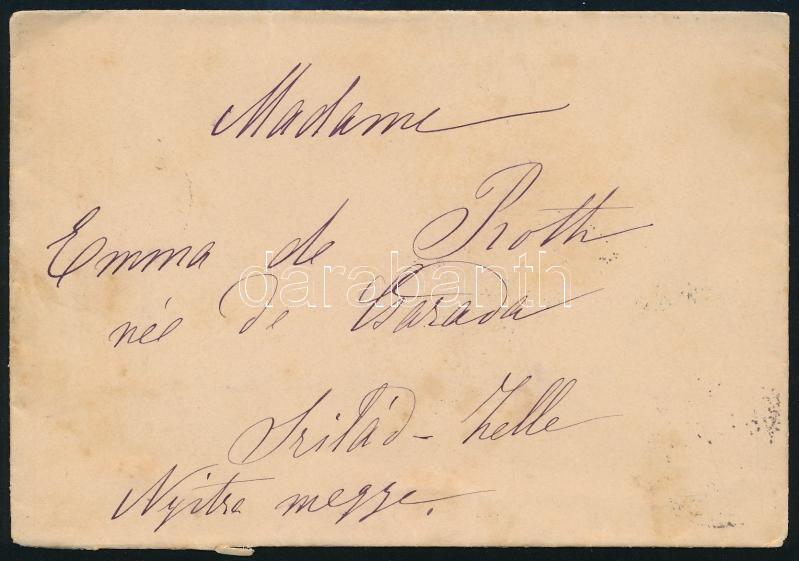 Madame
Emma de Roth
darabanth
née de Barada
Szilád - Zelle
Nyitra megye.